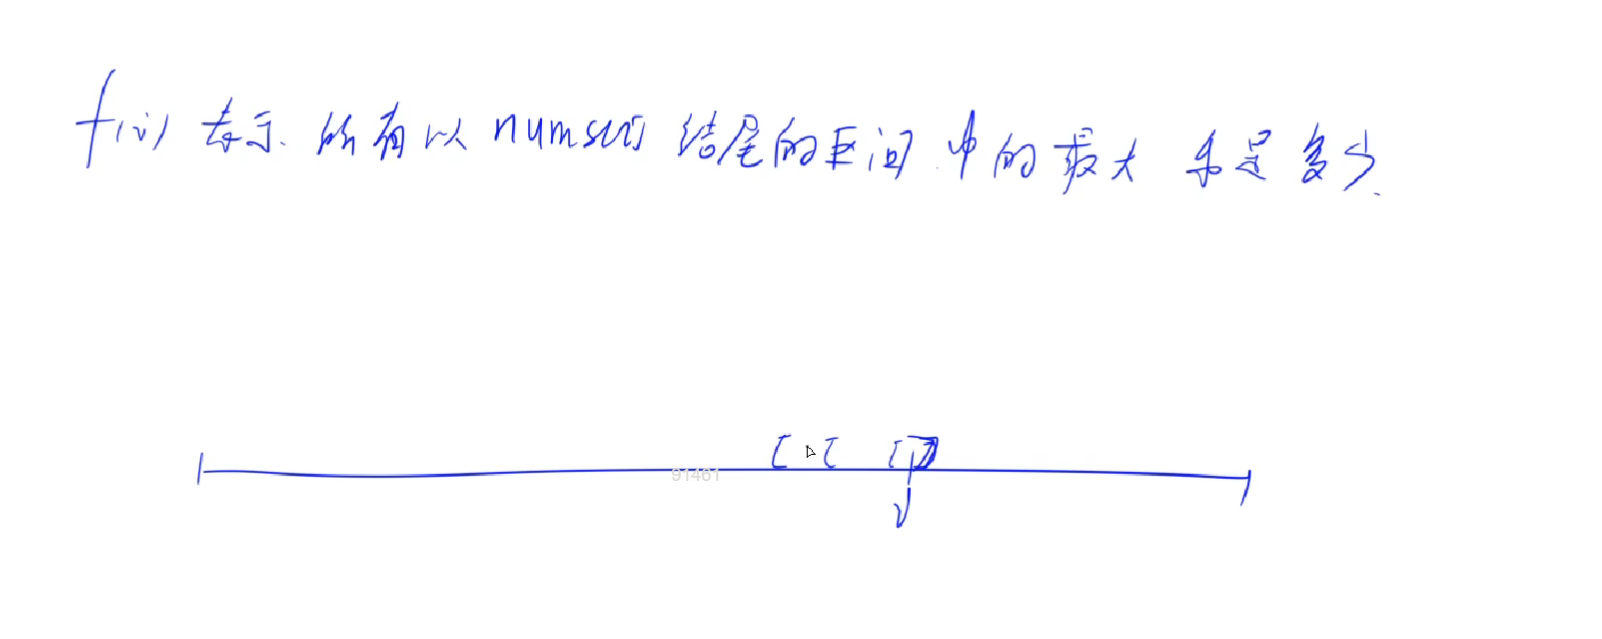 f(i) 表示 所有以 nums[i] 结尾的区间 中的最大 和是多少.
[ [ [ ]
i
91461